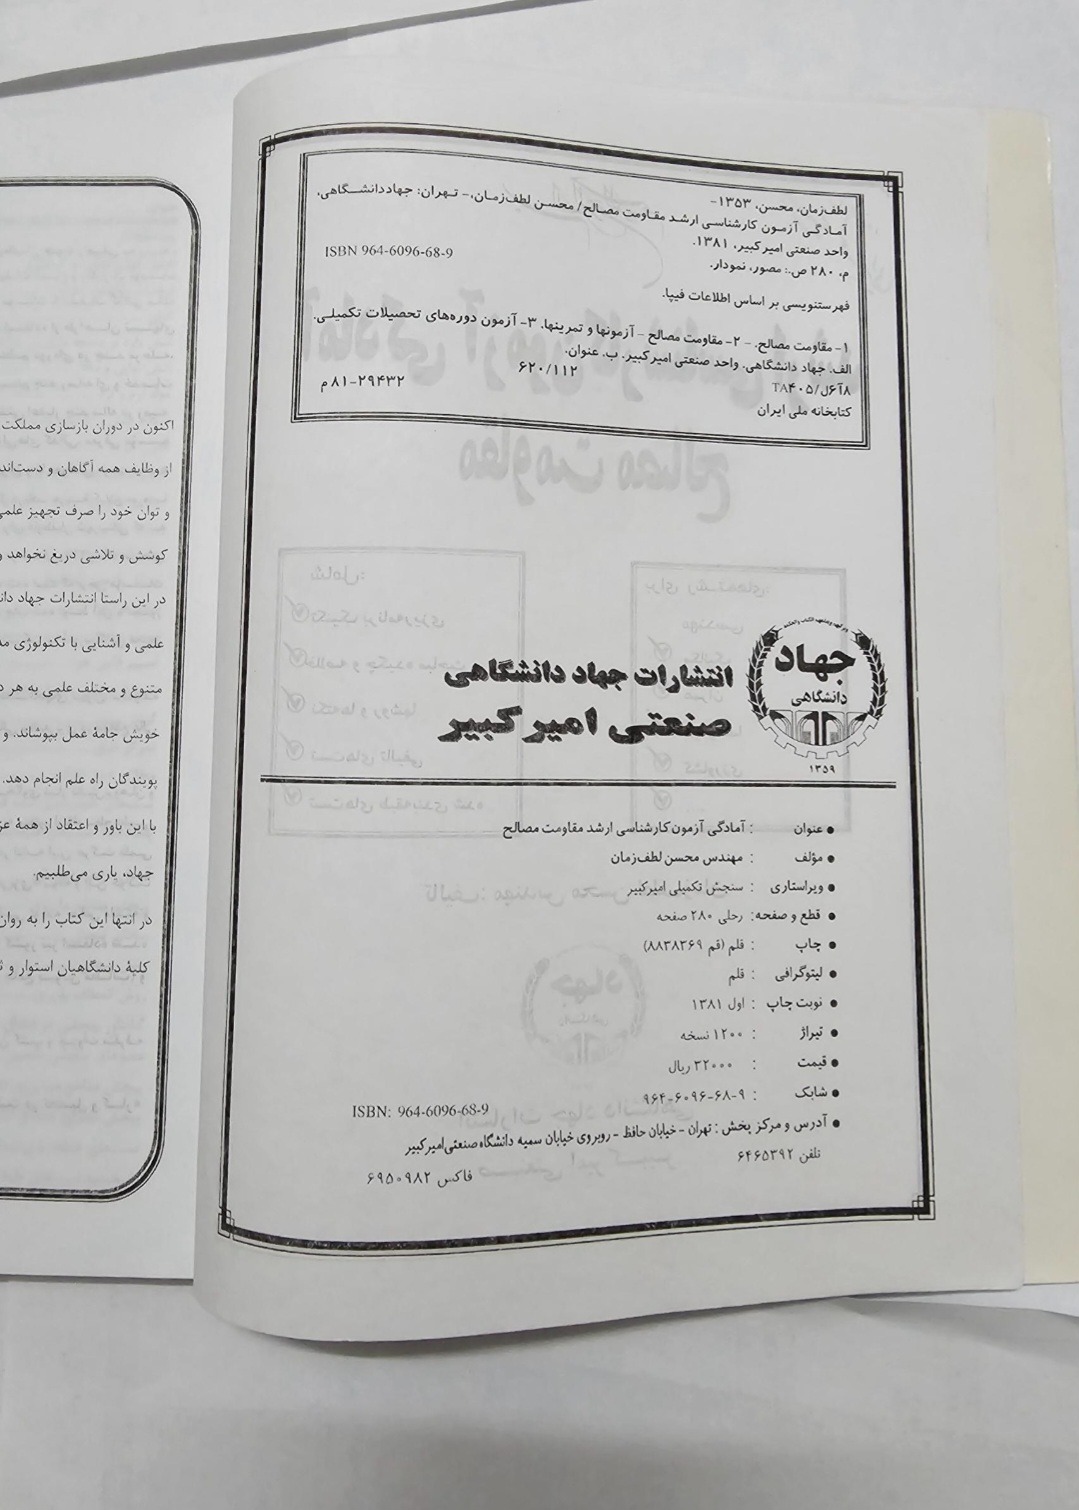 لطف‌زمان، محسن، ۱۳۵۳-
آمادگی آزمون کارشناسی ارشد مقاومت مصالح/ محسن لطف‌زمان،- تهران: جهاددانشگاهی،
واحد صنعتی امیرکبیر، ۱۳۸۱.
م، ۲۸۰ ص.: مصور، نمودار.
ISBN 964-6096-68-9
فهرستنویسی بر اساس اطلاعات فیپا.
۱- مقاومت مصالح. - ۲- مقاومت مصالح - آزمونها و تمرینها. ۳- آزمون دوره‌های تحصیلات تکمیلی.
الف. جهاد دانشگاهی. واحد صنعتی امیرکبیر. ب. عنوان.
۸آ۶ل/TA۴۰۵ ۶۲۰/۱۱۲
کتابخانه ملی ایران ۸۱-۲۹۴۳۲م
جهاد
دانشگاهی
۱۳۵۹
انتشارات جهاد دانشگاهی
صنعتی امیر کبیر
● عنوان : آمادگی آزمون کارشناسی ارشد مقاومت مصالح
● مؤلف : مهندس محسن لطف‌زمان
● ویراستاری : سنجش تکمیلی امیرکبیر
● قطع و صفحه: رحلی ۲۸۰ صفحه
● چاپ : قلم (قم ۸۸۳۸۳۶۹)
● لیتوگرافی : قلم
● نوبت چاپ : اول ۱۳۸۱
● تیراژ : ۱۲۰۰ نسخه
● قیمت : ۳۲۰۰۰ ریال
● شابک : ۹۶۴-۶۰۹۶-۶۸-۹ ISBN: 964-6096-68-9
● آدرس و مرکز پخش : تهران - خیابان حافظ - روبروی خیابان سمیه دانشگاه صنعتی امیرکبیر
تلفن ۶۴۶۵۳۹۲
فاکس ۶۹۵۰۹۸۲
اکنون در دوران بازسازی مملکت
از وظایف همه آگاهان و دست‌اند
و توان خود را صرف تجهیز علمی
کوشش و تلاشی دریغ نخواهد و
در این راستا انتشارات جهاد دان
علمی و آشنایی با تکنولوژی مد
متنوع و مختلف علمی به هر د
خویش جامهٔ عمل بپوشاند. و
پویندگان راه علم انجام دهد.
با این باور و اعتقاد از همهٔ عز
جهاد، یاری می‌طلبیم.
در انتها این کتاب را به روان
کلیهٔ دانشگاهیان استوار و ث